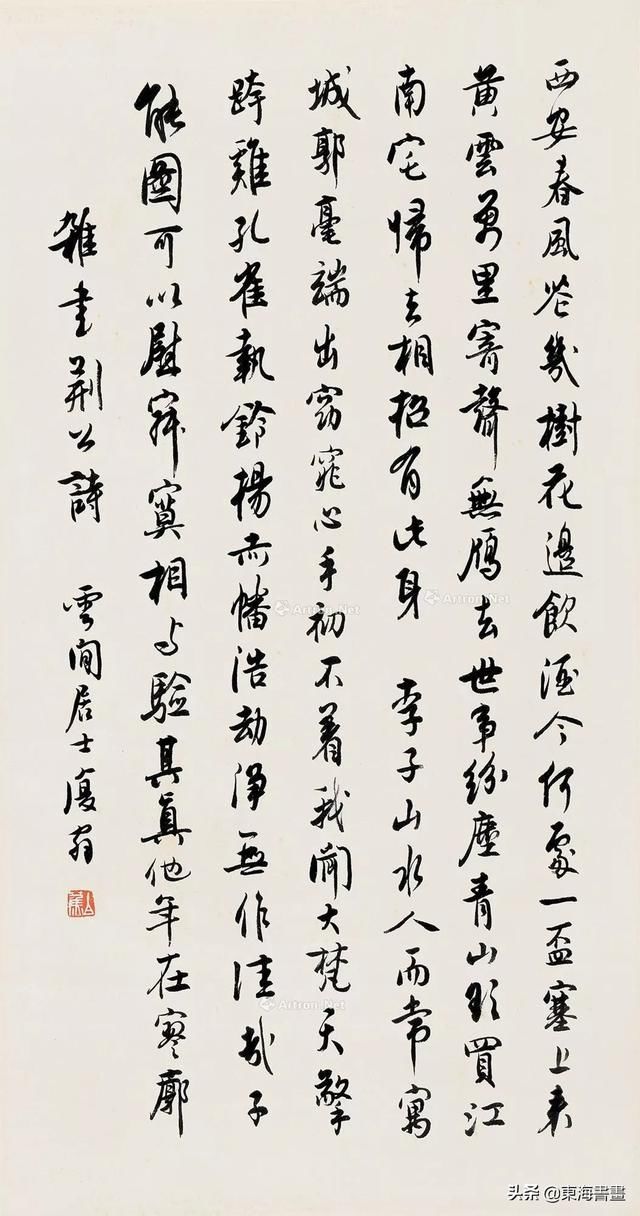 西安春風花幾樹花邊飲酒今何處一盃塞上來
黄雲萬里寄聲無鴈去世事紛塵青山欲買江
南宅歸去相招有此身 李子山水人而常寓
城郭毫端出窈窕心手初不着我聞大梵天擎
跨雞孔雀執鈴揚赤幡浩劫淨無作佳哉子
能圖可以慰寂寞相与驗其真他年在寥廓
雜書荆公詩 雲間居士復翁
Artron.Net
Artron.Net
Artron.Net
头条 @東海書畫